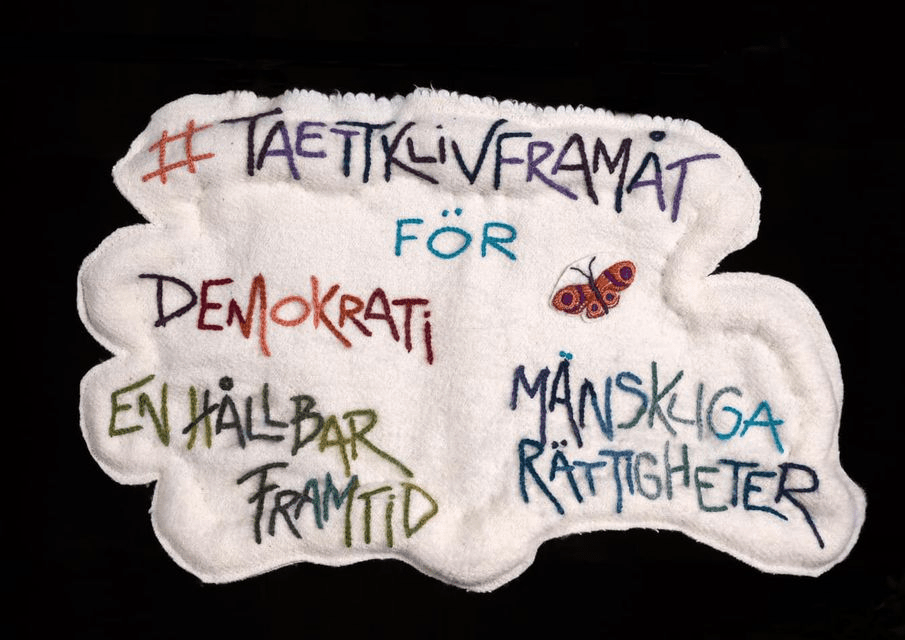 #TAETTKLIVFRAMÅT
FÖR
DEMOKRATi
EN HÅLLBAR
FRAMTID
MÄNSKLIGA
RÄTTIGHETER